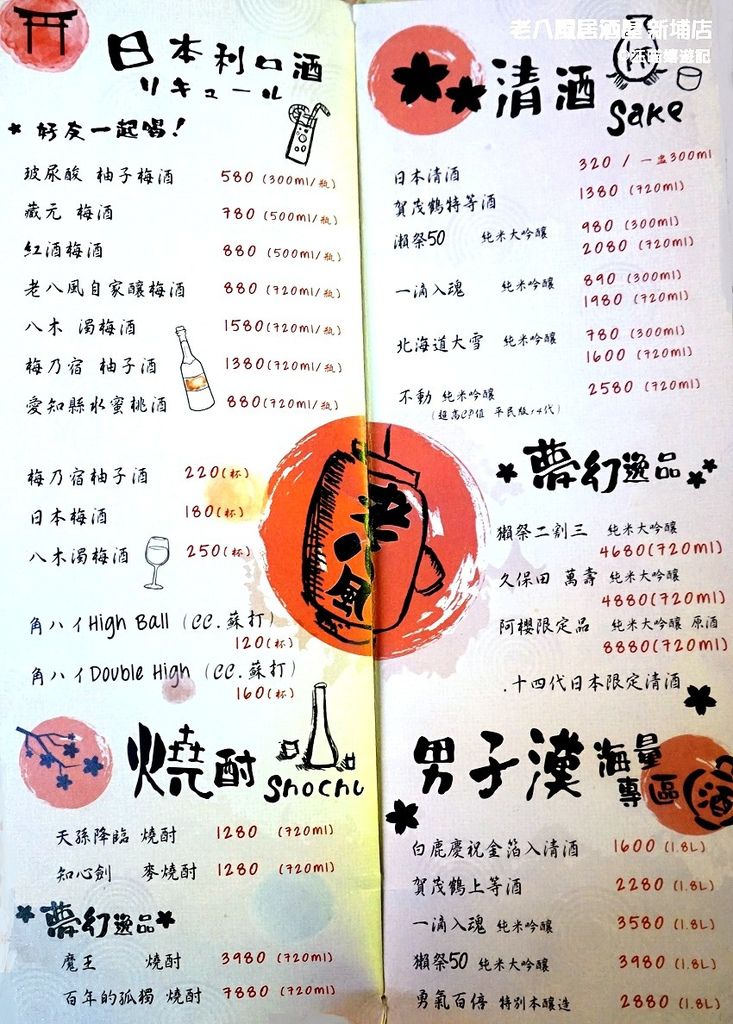 日本利口酒
リキュール
好友一起喝!
玻尿酸 柚子梅酒 580 (300ml/瓶)
藏元 梅酒 780 (500ml/瓶)
紅酒梅酒 880 (500ml/瓶)
老八風自家釀梅酒 880 (720ml/瓶)
八木 濁梅酒 1580(720ml/瓶)
梅乃宿 柚子酒 1380(720ml/瓶)
愛知縣水蜜桃酒 880(720ml/瓶)
梅乃宿柚子酒 220(杯)
日本梅酒 180(杯)
八木濁梅酒 250(杯)
角ハイHigh Ball (CC.蘇打)
120(杯)
角ハイDouble High (CC.蘇打)
160(杯)
燒酎 Shochu
天孫降臨 燒酎 1280 (720ml)
知心劍 麥燒酎 1280 (720ml)
夢幻逸品
魔王 燒酎 3980 (720ml)
百年的孤獨 燒酎 7880 (720ml)
老八風居酒屋 新埔店
清酒 Sake
日本清酒 320 / 一壺300ml
賀茂鶴特等酒 1380 (720ml)
瀨祭50 純米大吟釀 980 (300ml)
2080 (720ml)
一滴入魂 純米吟釀 890 (300ml)
1980 (720ml)
北海道大雪 純米吟釀 780 (300ml)
1600 (720ml)
不動 純米吟釀 2580 (720ml)
(超高CP值 平民版14代)
夢幻逸品
獺祭二割三 純米大吟釀
4680(720ml)
久保田 萬壽 純米大吟釀
4880(720ml)
阿櫻限定品 純米大吟釀 原酒
8880(720ml)
.十四代日本限定清酒
男子漢 海量專區
酒
白鹿慶祝金箔入清酒 1600 (1.8L)
賀茂鶴上等酒 2280 (1.8L)
一滴入魂 純米吟釀 3580 (1.8L)
獺祭50 純米大吟釀 3980 (1.8L)
勇氣百倍 特別本釀造 2880 (1.8L)
老八風